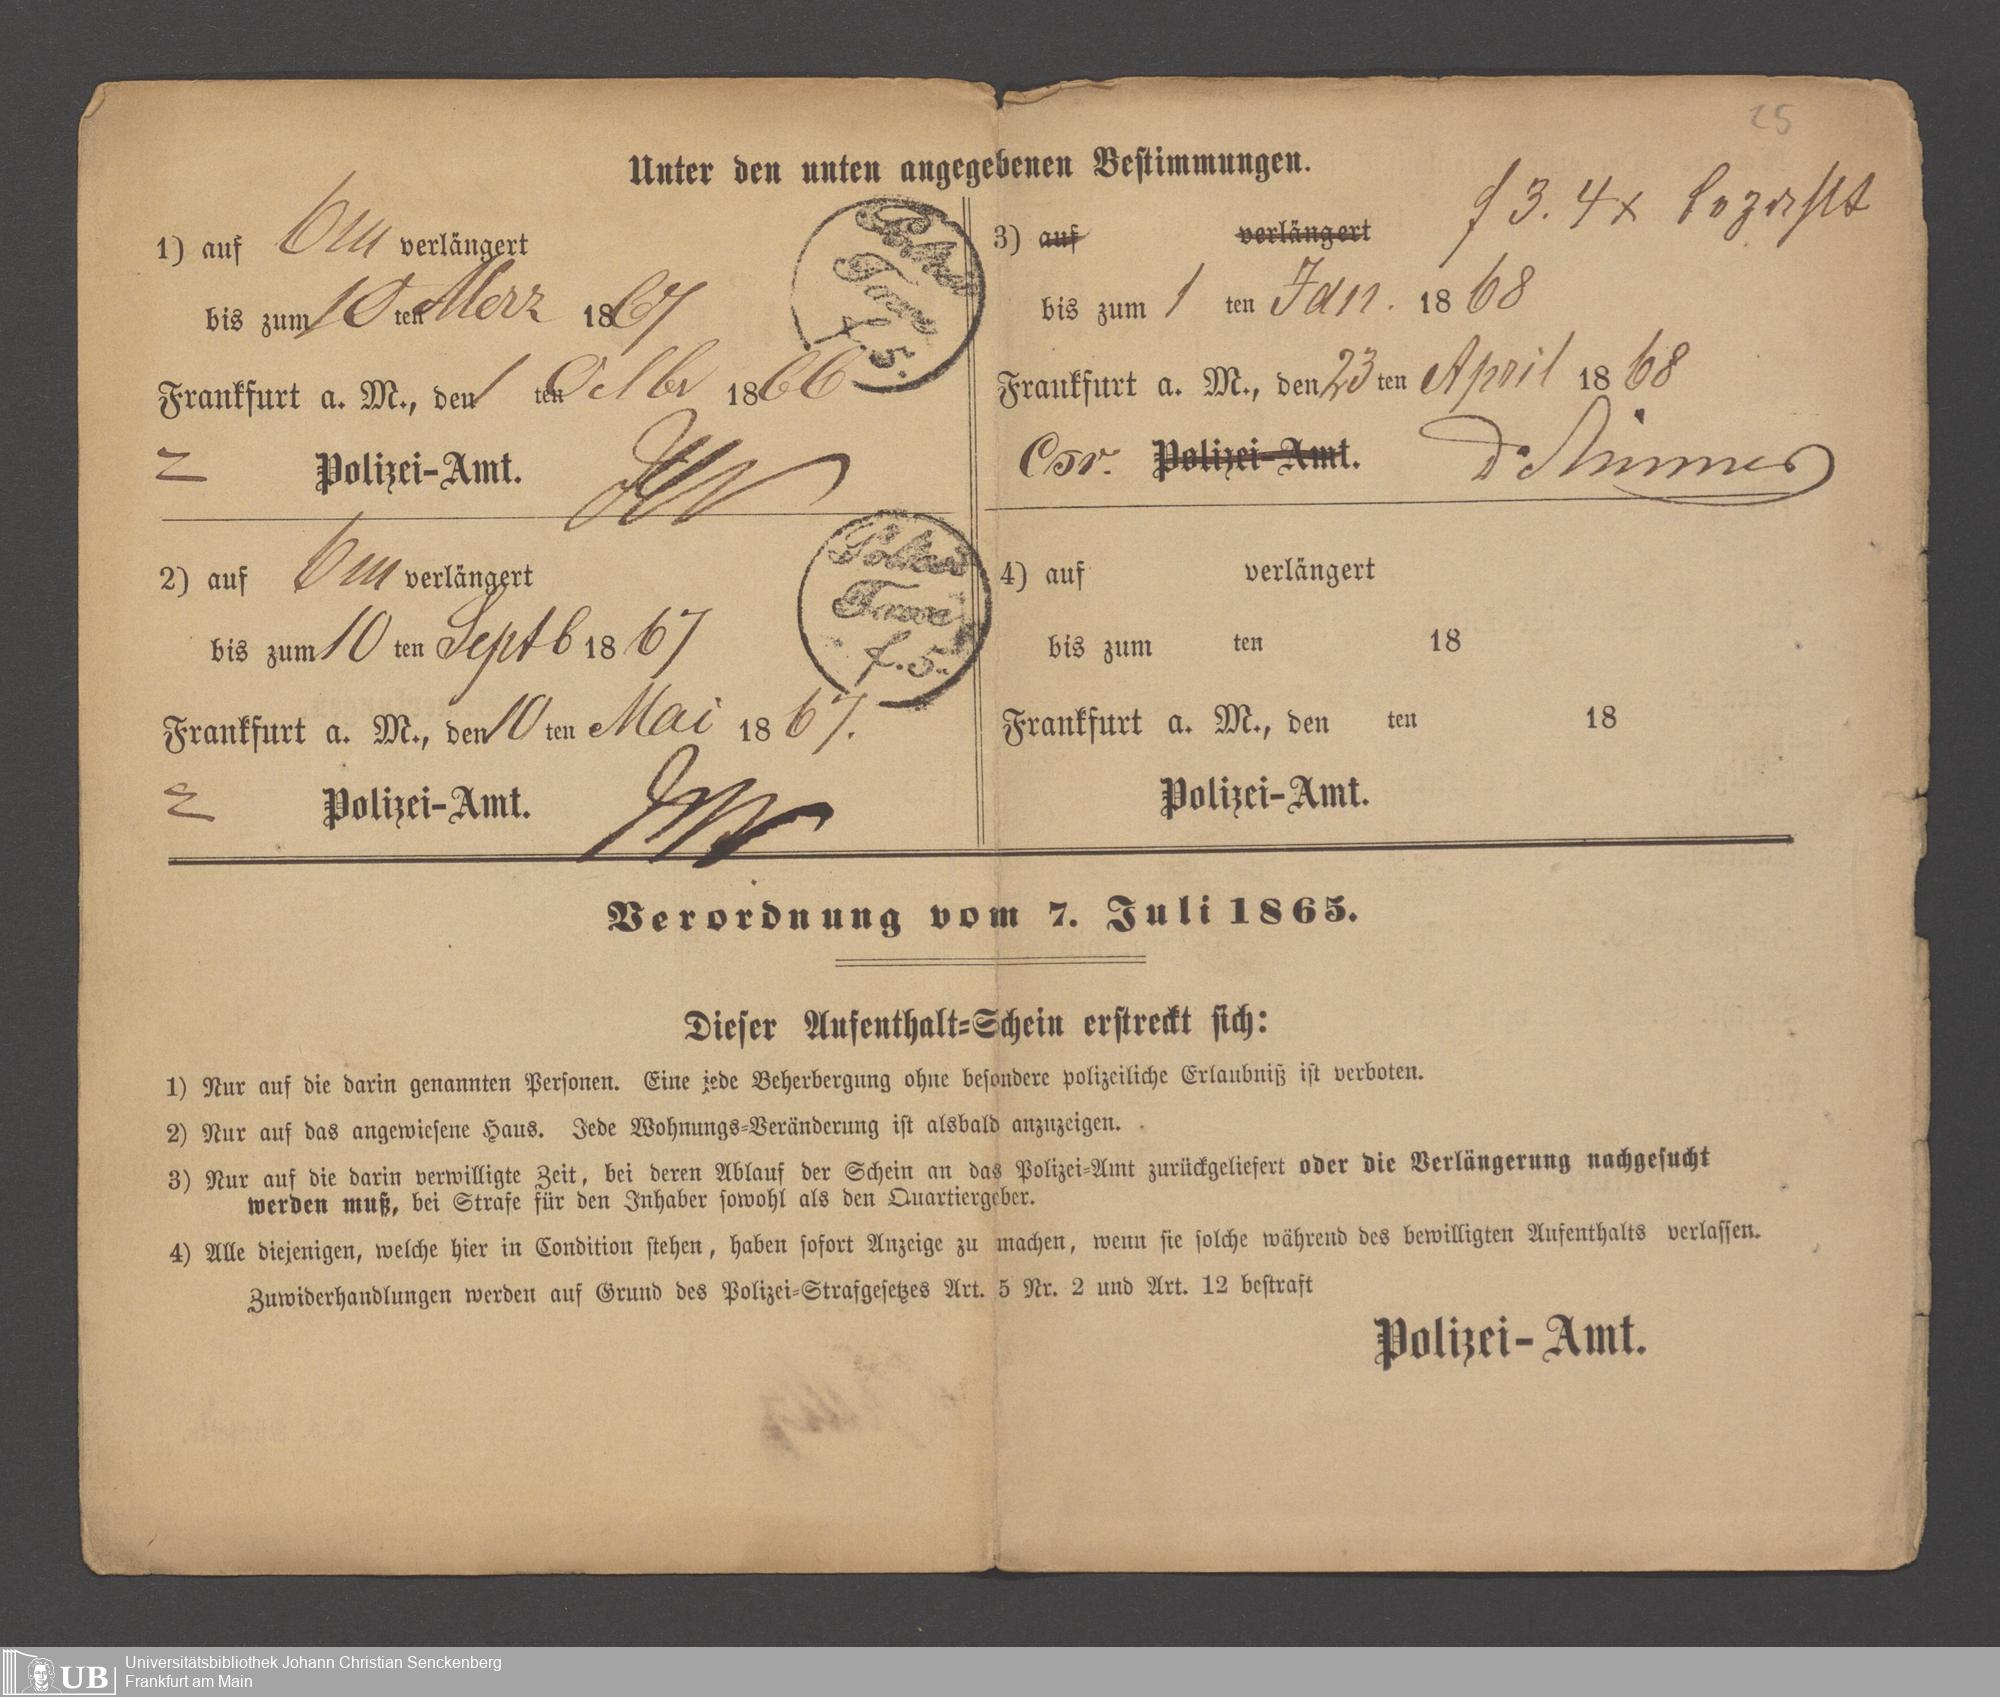 25
Unter den unten angegebenen Bestimmungen.
1) auf 6 m verlängert
bis zum 10 ten Merz 1867
Frankfurt a. M., den 1 ten Octbr 1866
Polizei-Amt.
Polizei
Taxe
f. 5.
2) auf 6 m verlängert
bis zum 10 ten Septb 1867
Frankfurt a. M., den 10 ten Mai 1867.
Polizei-Amt.
Polizei
Taxe
f. 5.
f 3. 4 x bezahlt
3) auf verlängert
bis zum 1 ten Jan. 1868
Frankfurt a. M., den 23 ten April 1868
Polizei-Amt.
4) auf verlängert
bis zum ten 18
Frankfurt a. M., den ten 18
Polizei-Amt.
Verordnung vom 7. Juli 1865.
Dieser Aufenthalt-Schein erstreckt sich:
1) Nur auf die darin genannten Personen. Eine jede Beherbergung ohne besondere polizeiliche Erlaubniß ist verboten.
2) Nur auf das angewiesene Haus. Jede Wohnungs-Veränderung ist alsbald anzuzeigen.
3) Nur auf die darin verwilligte Zeit, bei deren Ablauf der Schein an das Polizei-Amt zurückgeliefert oder die Verlängerung nachgesucht
werden muß, bei Strafe für den Inhaber sowohl als den Quartiergeber.
4) Alle diejenigen, welche hier in Condition stehen, haben sofort Anzeige zu machen, wenn sie solche während des bewilligten Aufenthalts verlassen.
Zuwiderhandlungen werden auf Grund des Polizei-Strafgesetzes Art. 5 Nr. 2 und Art. 12 bestraft
Polizei-Amt.
UB
Universitätsbibliothek Johann Christian Senckenberg
Frankfurt am Main